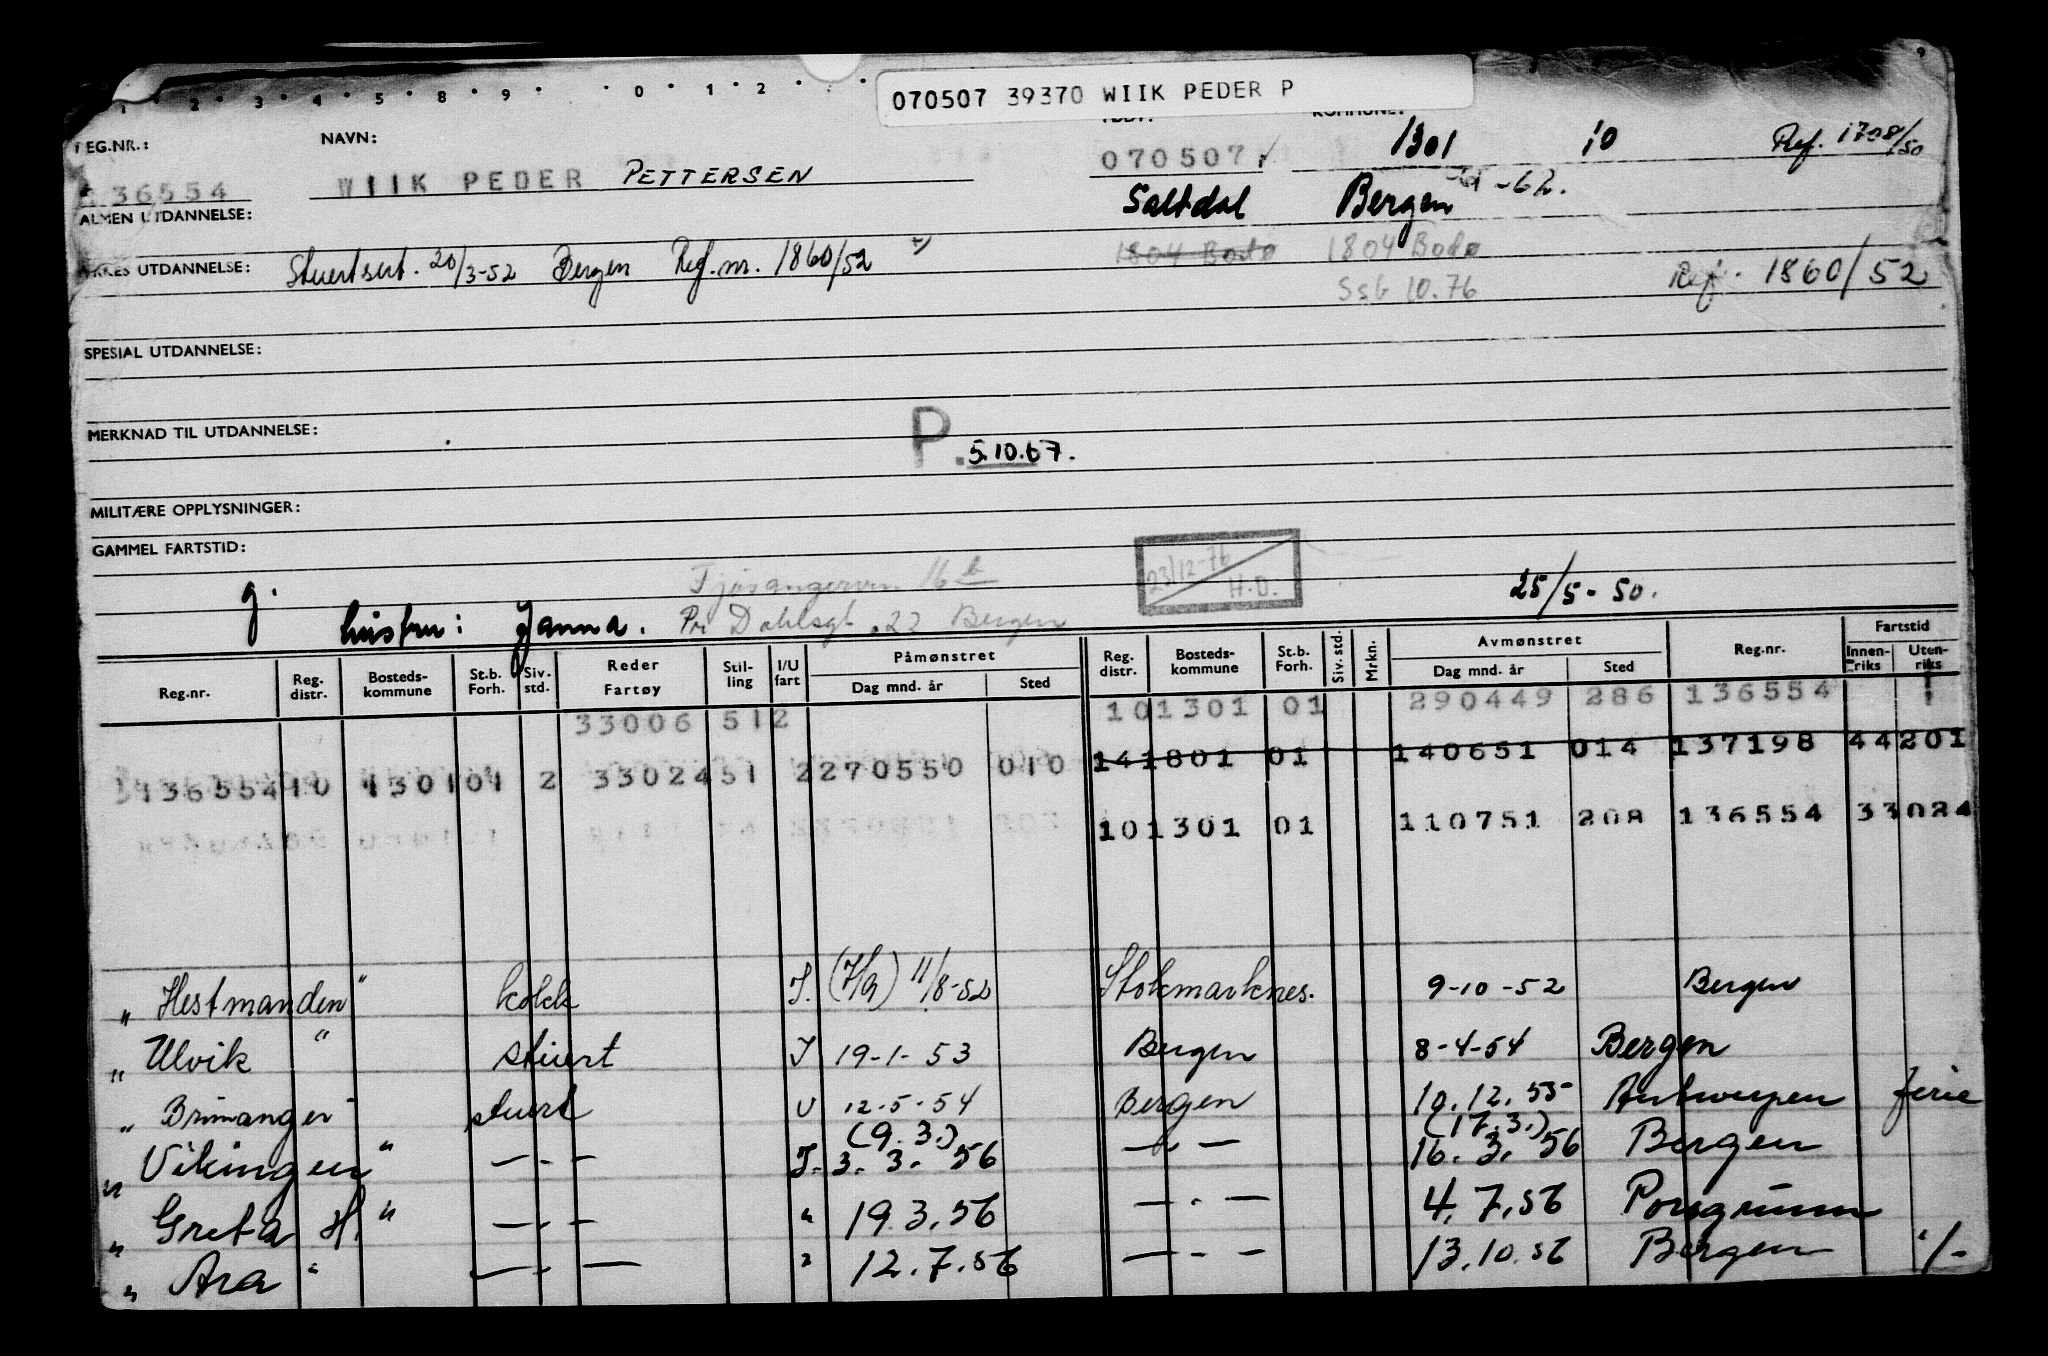 1 · 2 · 3 · 4 · 5 · 8 · 9 · 0 · 1 · 2 · · 9
070507 39370 WIIK PEDER P
REG.NR.: NAVN:
36554 WIIK PEDER PETTERSEN 070507 1301 10 Ref. 1708/50
ALMEN UTDANNELSE: Saltdal Bergen -62.
UTDANNELSE: Stuertsert. 20/3-52 Bergen Ref.nr. 1860/52 1804 Bodø 1804 Bodø
Ssb 10.76 Ref. 1860/52
SPESIAL UTDANNELSE:
MERKNAD TIL UTDANNELSE: P. 5.10.67.
MILITÆRE OPPLYSNINGER:
GAMMEL FARTSTID: 23/12-76 H.O.
g. 16 b 25/5-50.
hustru: Janna. Dahlsgt. 22 Bergen
Reg.nr. Reg. distr. Bosteds-kommune St.b. Forh. Siv. std. Reder Fartøy Stil-ling I/U fart Påmønstret Dag mnd. år Sted Reg. distr. Bosteds-kommune St.b. Forh. Siv. std. Mrkn. Avmønstret Dag mnd. år Sted Reg.nr. Fartstid Innen-riks Uten-riks
33006 512 101301 01 290449 286 136554
13655410 130101 2 3302451 2270550 010 141801 01 140651 014 137198 44201
101301 01 110751 208 136554 33024
" Hestmanden " kokk I. 11/8-52 Stokmarknes. 9-10-52 Bergen
" Ulvik " stuert I 19-1-53 Bergen 8-4-54 Bergen
" Brimanger " stuert U 12-5-54 Bergen 10.12.55 Antwerpen ferie
" Vikingen " — . — I. (9.3.) 3. 3. 56 — . — (17.3.) 16. 3. 56 Bergen
" Greta H. " — . — " 19.3.56 — . — 4.7.56 Porsgrunn
" Ara " — . — " 12.7.56 — . — 13.10.56 Bergen ·/-